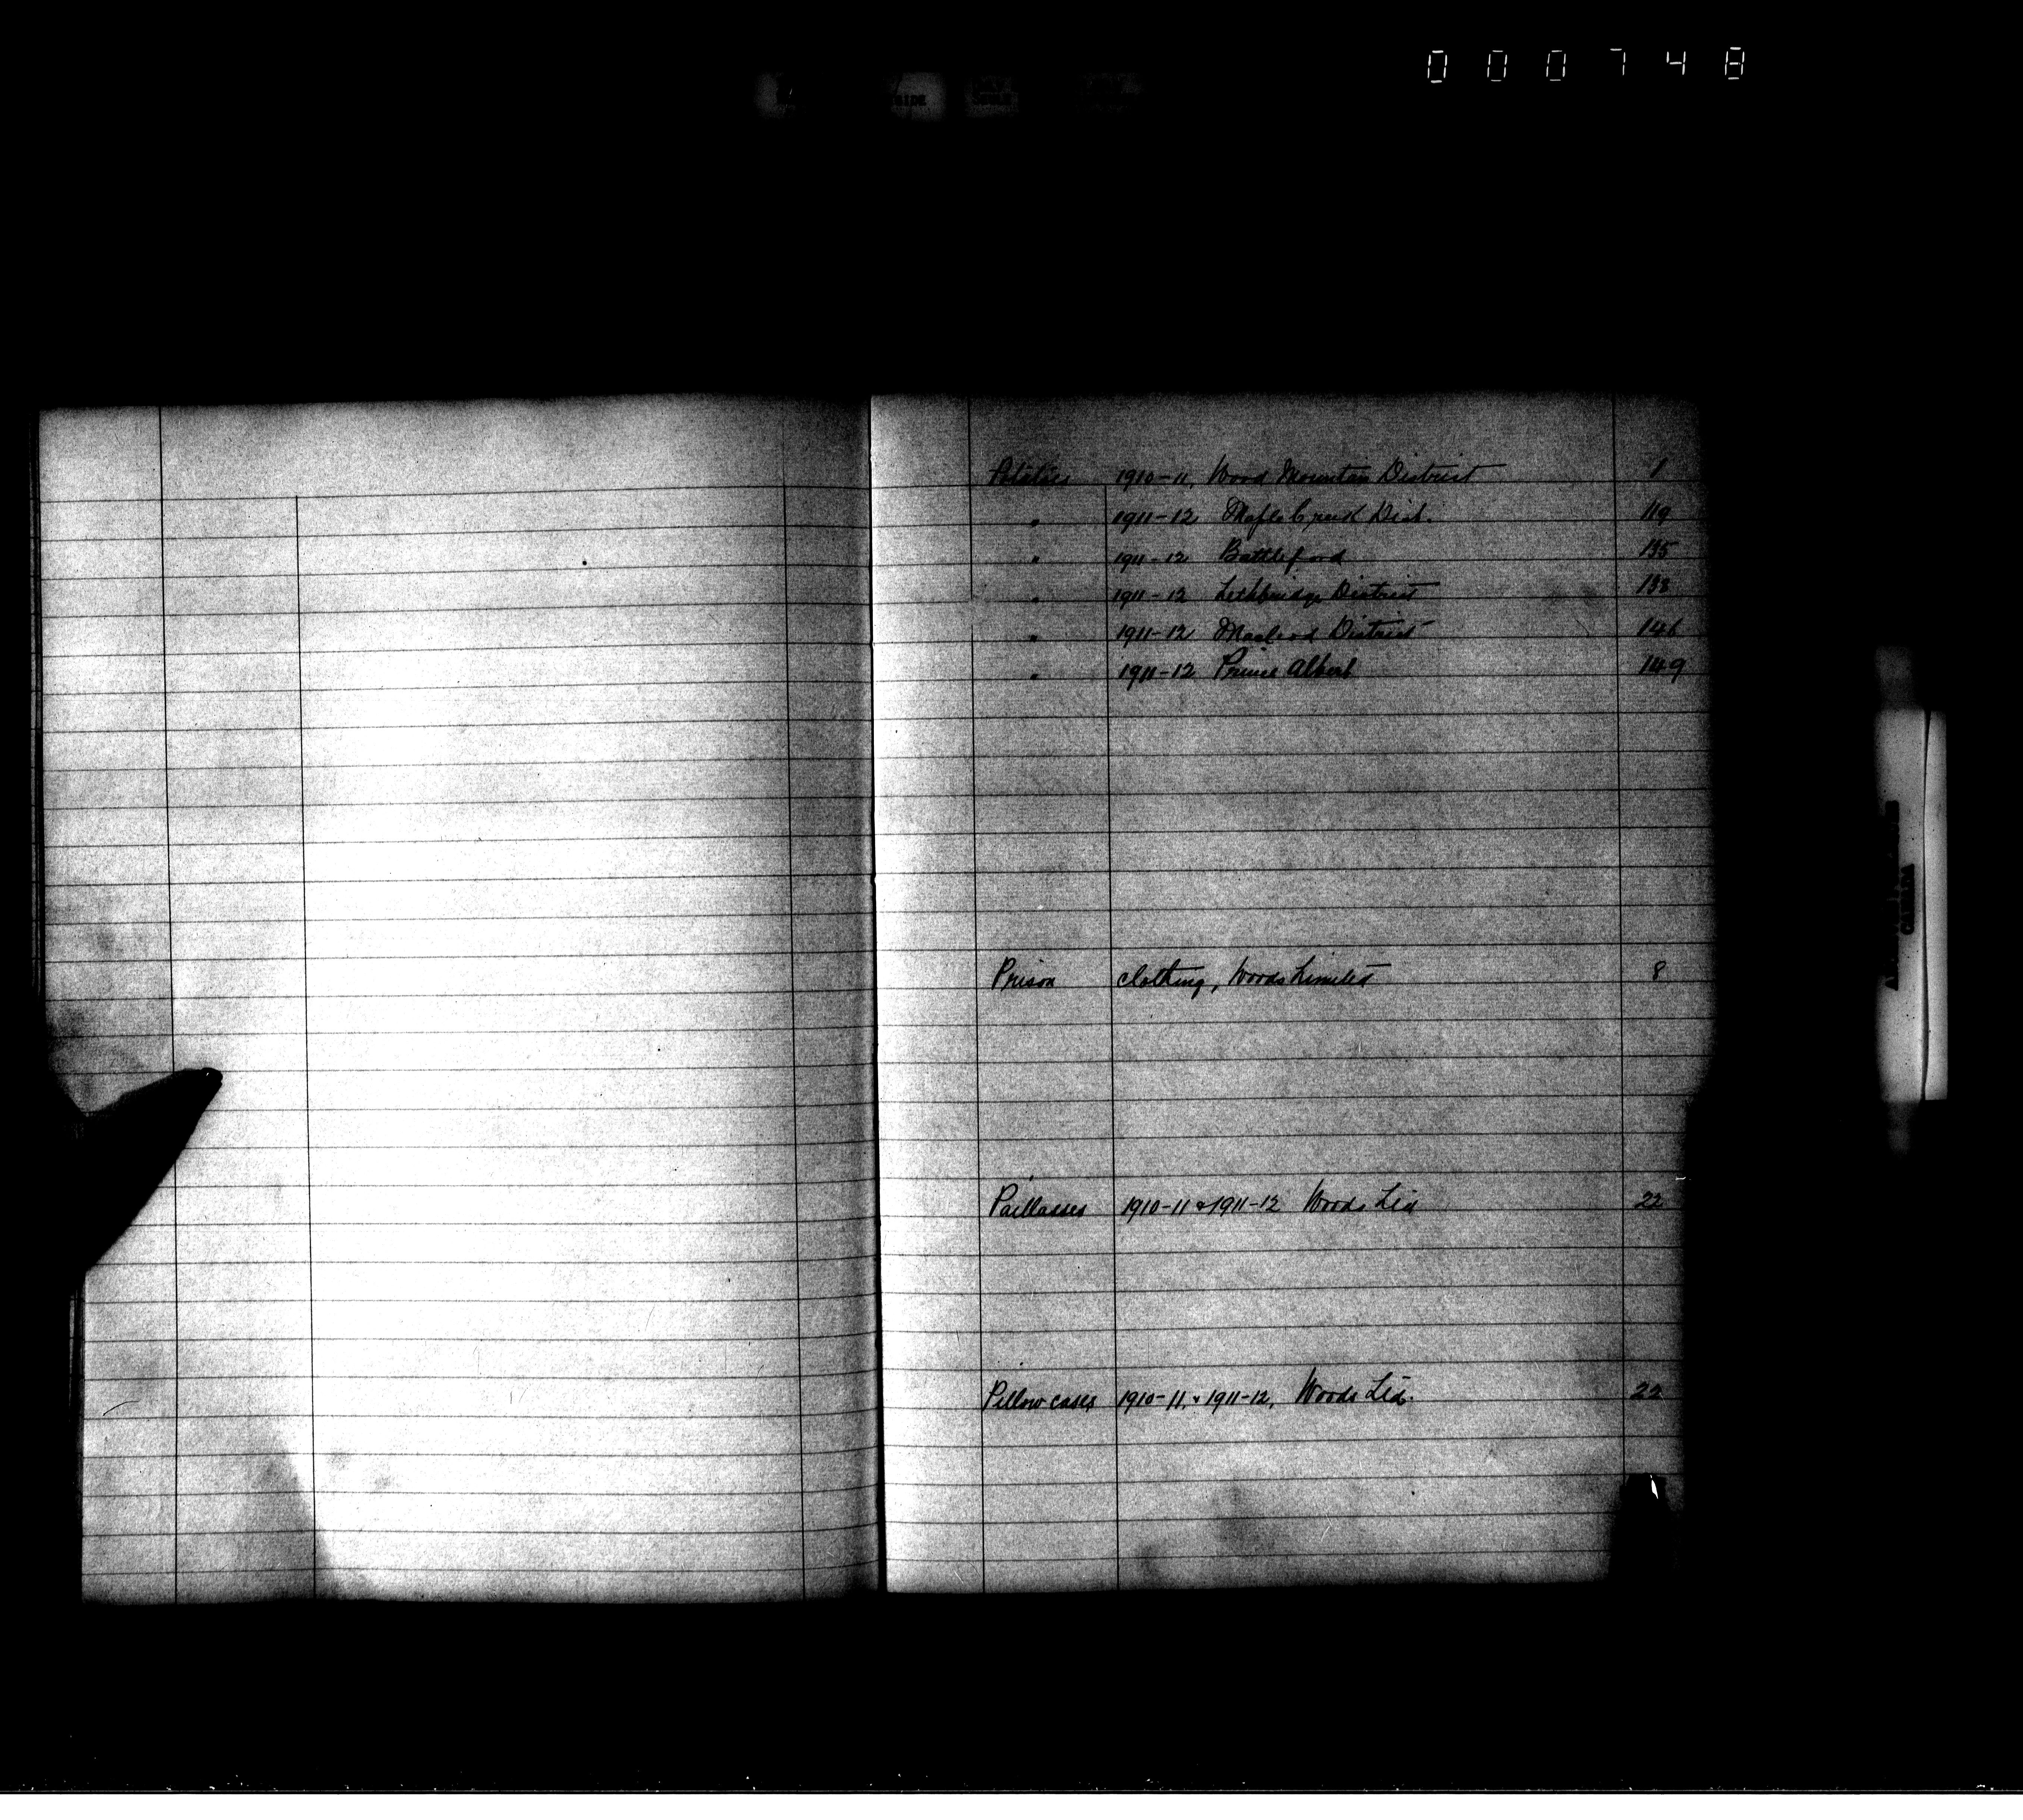 000748
Potatoes 1910-11, Wood Mountain District 1
" 1911-12 Maple Creek Dist. 119
" 1911-12 Battleford 135
" 1911-12 Lethbridge District 138
" 1911-12 Macleod District 146
" 1911-12 Prince Albert 149
Prison clothing, Woods Limited 8
Paillasses 1910-11 & 1911-12 Woods Ltd 22
Pillow cases 1910-11, & 1911-12, Woods Ltd. 22